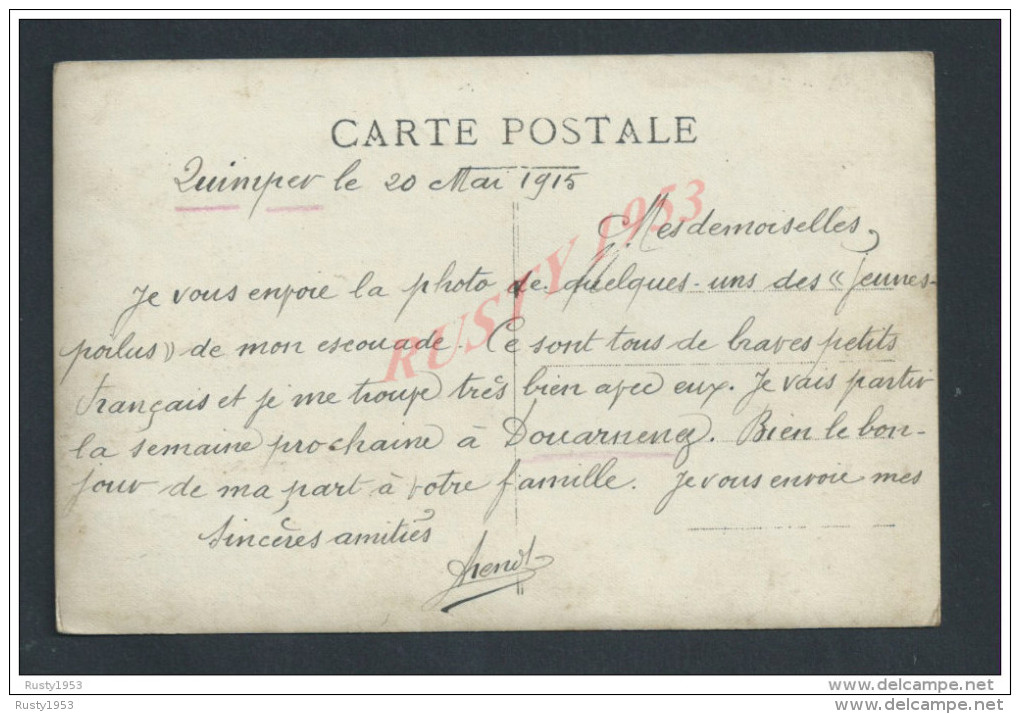 CARTE POSTALE
Quimper le 20 Mai 1915
Mesdemoiselles,
Je vous envoie la photo de quelques-uns des « jeunes-
poilus » de mon escouade. Ce sont tous de braves petits
français et je me trouve très bien avec eux. Je vais partir
la semaine prochaine à Douarnenez. Bien le bon-
jour de ma part à votre famille. Je vous envoie mes
sincères amitiés
RUSTY 1953
Rusty1953
Rusty1953
www.delcampe.net
www.delcampe.net